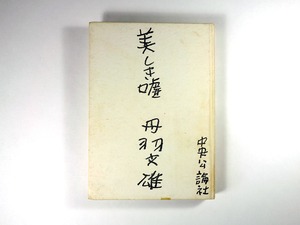 美しき嘘　丹羽文雄
中央公論社